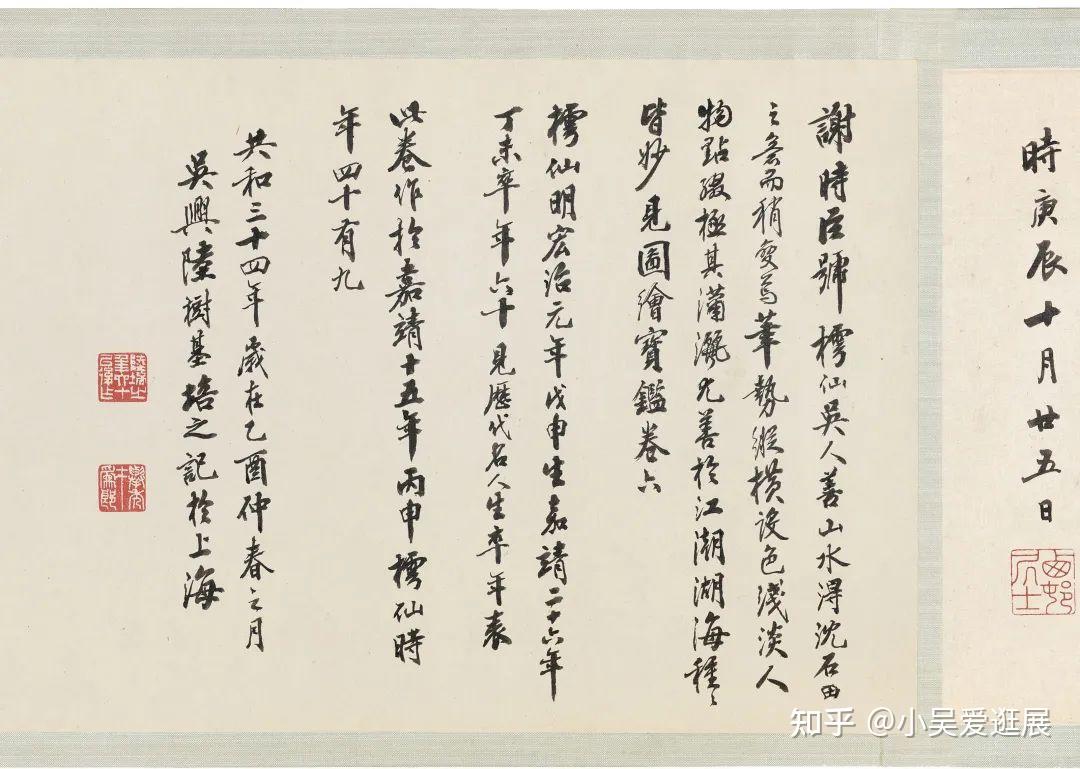 時庚辰十月廿五日
謝時臣號樗仙吳人善山水得沈石田
之意而稍變焉筆勢縱橫設色淺淡人
物點綴極其瀟灑尤善於江潮湖海種〻
皆妙見圖繪寶鑑卷六
樗仙明宏治元年戊申生嘉靖二十六年
丁未卒年六十見歷代名人生卒年表
此卷作於嘉靖十五年丙申樗仙時
年四十有九
共和三十四年歲在乙酉仲春之月
吳興陸樹基培之記於上海
知乎 @小吴爱逛展